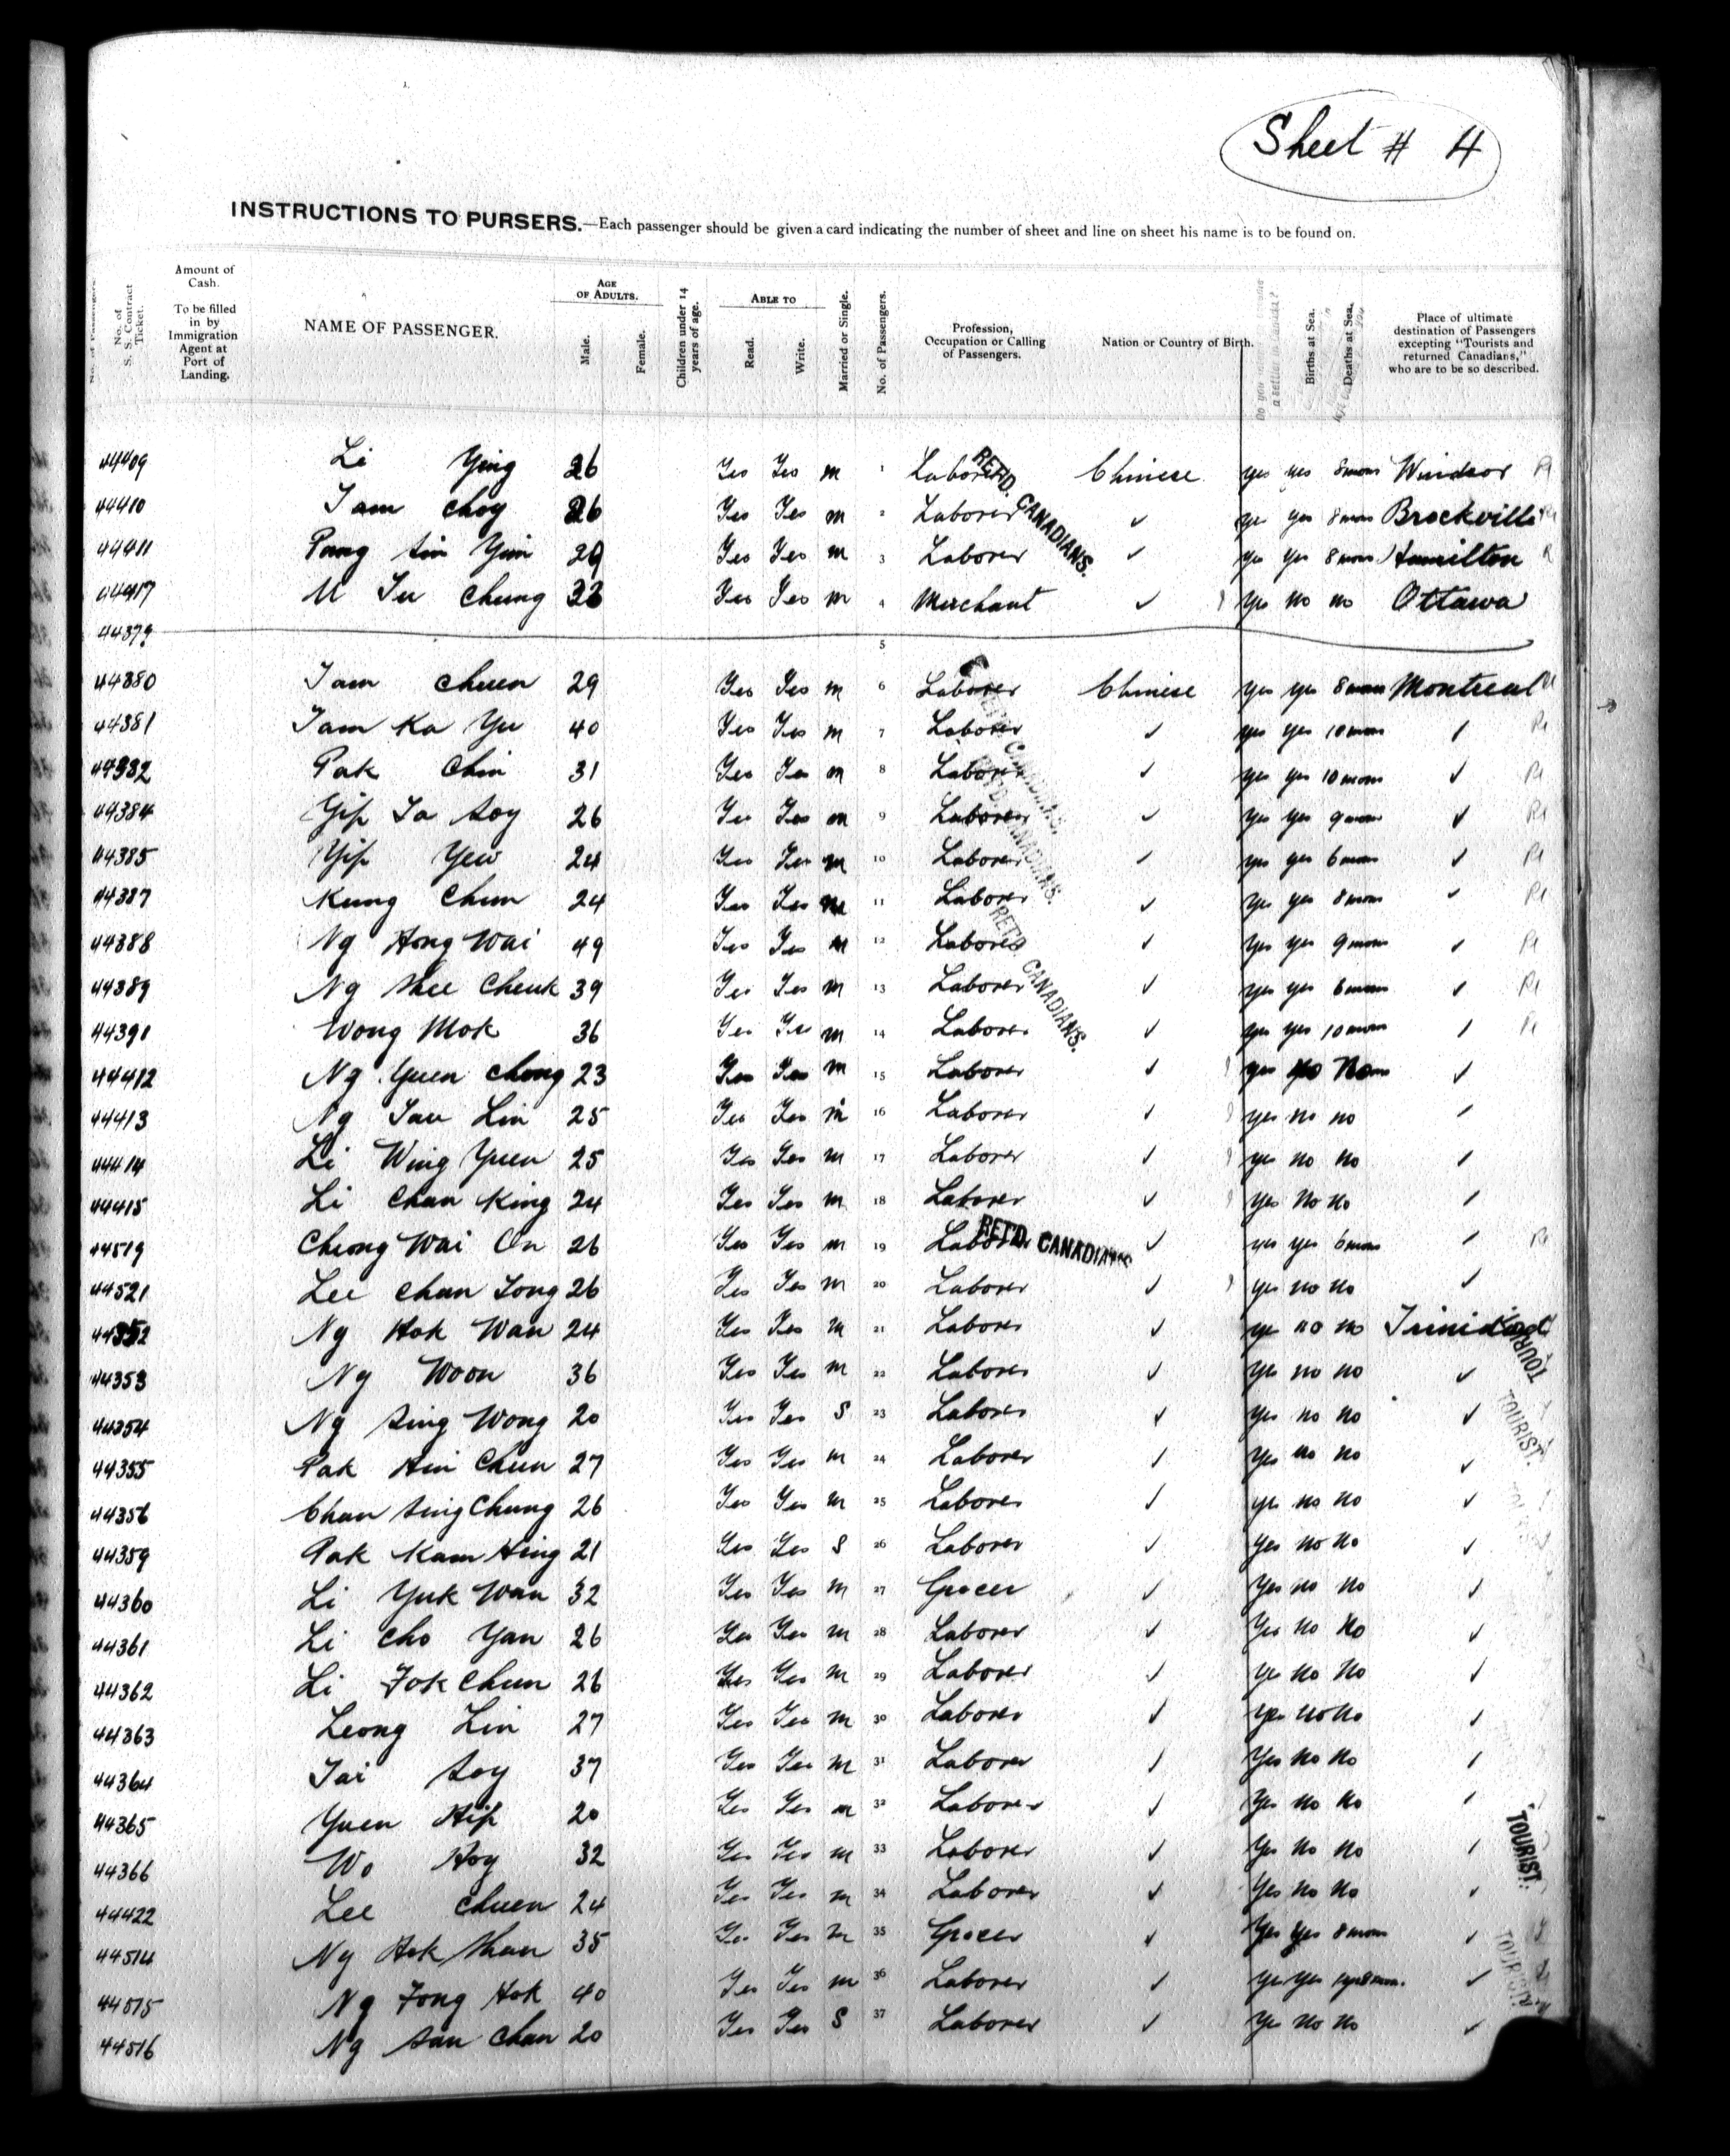 Sheet # 4
INSTRUCTIONS TO PURSERS.—Each passenger should be given a card indicating the number of sheet and line on sheet his name is to be found on.
No. of Passengers. No. of S. S. Contract Ticket. Amount of Cash. To be filled in by Immigration Agent at Port of Landing. NAME OF PASSENGER. AGE OF ADULTS. Male. Female. Children under 14 years of age. ABLE TO Read. Write. Married or Single. No. of Passengers. Profession, Occupation or Calling of Passengers. Nation or Country of Birth. Births at Sea. Deaths at Sea. Place of ultimate destination of Passengers excepting "Tourists and returned Canadians," who are to be so described.
44409 Li Ying 26 Yes Yes m 1 Laborer RET'D. CANADIANS. Chinese yes yes 8 mons Windsor
44410 Tam Choy 26 Yes Yes m 2 Laborer ✓ yes yes 8 mons Brockville
44411 Pang Sin Yim Yes Yes m 3 Laborer ✓ yes yes 8 mons Hamilton
44417 Chung Yes Yes m 4 Merchant ✓ yes no no Ottawa
44379 5
44380 Tam Chuen 29 Yes Yes m 6 Laborer Chinese yes yes 8 mons Montreal
44381 Tam Ka Yu 40 Yes Yes m 7 Laborer ✓ yes yes 10 mons ✓
44382 Pak Chin 31 Yes Yes m 8 Laborer ✓ yes yes 10 mons ✓
44384 Yip Ta Soy 26 Yes Yes m 9 Laborer ✓ yes yes 9 mons ✓
44385 Yip Yew 24 Yes Yes m 10 Laborer ✓ yes yes 6 mons ✓
44387 Kung Chun 24 Yes Yes m 11 Laborer ✓ yes yes 8 mons ✓
44388 Ng Hong Wai 49 Yes Yes m 12 Laborer RET'D. CANADIANS. ✓ yes yes 9 mons ✓
44389 Ng Shee Cheuk 39 Yes Yes m 13 Laborer ✓ yes yes 6 mons ✓
44391 Wong Mok 36 Yes Yes m 14 Laborer ✓ yes yes 10 mons ✓
44412 Ng Yuen Chong 23 Yes Yes m 15 Laborer ✓ yes ✓
44413 Ng Tau Lin 25 Yes Yes m 16 Laborer ✓ yes no no ✓
44414 Li Wing Yuen 25 Yes Yes m 17 Laborer ✓ yes no no ✓
44415 Li Chan King 24 Yes Yes m 18 Laborer ✓ yes no no ✓
44519 Cheong Wai On 26 Yes Yes m 19 Laborer RET'D. CANADIANS ✓ yes yes 6 mons ✓
44521 Lee Chan Tong 26 Yes Yes m 20 Laborer ✓ yes no no ✓
44352 Ng Hok Wan 24 Yes Yes m 21 Laborer ✓ yes no no Trinidad TOURIST
44353 Ng Woon 36 Yes Yes m 22 Laborer ✓ yes no no ✓
44354 Ng Sing Wong 20 Yes Yes S 23 Laborer ✓ yes no no ✓ TOURIST.
44355 Pak Hin Chun 27 Yes Yes m 24 Laborer ✓ yes no no ✓
44356 Chan Sing Chung 26 Yes Yes m 25 Laborer ✓ yes no no ✓
44359 Pak Kam Hing 21 Yes Yes S 26 Laborer ✓ yes no no ✓
44360 Li Yuk Wan 32 Yes Yes m 27 Grocer ✓ Yes no no ✓
44361 Li Cho Yan 26 Yes Yes m 28 Laborer ✓ Yes no no ✓
44362 Li Fok Chun 26 Yes Yes m 29 Laborer ✓ yes no no ✓
44363 Leong Lin 27 Yes Yes m 30 Laborer ✓ yes no no ✓
44364 Tai Soy 37 Yes Yes m 31 Laborer ✓ Yes no no ✓
44365 Yuen Hip 20 Yes Yes m 32 Laborer ✓ Yes no no ✓
44366 Wo Hoy 32 Yes Yes m 33 Laborer ✓ Yes no no ✓ TOURIST.
44422 Lee Chuen 24 Yes Yes m 34 Laborer ✓ Yes no no ✓
44514 Ng Hok Shan 35 Yes Yes m 35 Grocer ✓ Yes Yes 8 mons ✓
44515 Ng Fong Hok 40 Yes Yes m 36 Laborer ✓ Yes Yes ✓ TOURIST.
44516 Ng San Chan 20 Yes Yes S 37 Laborer ✓ Yes no no ✓